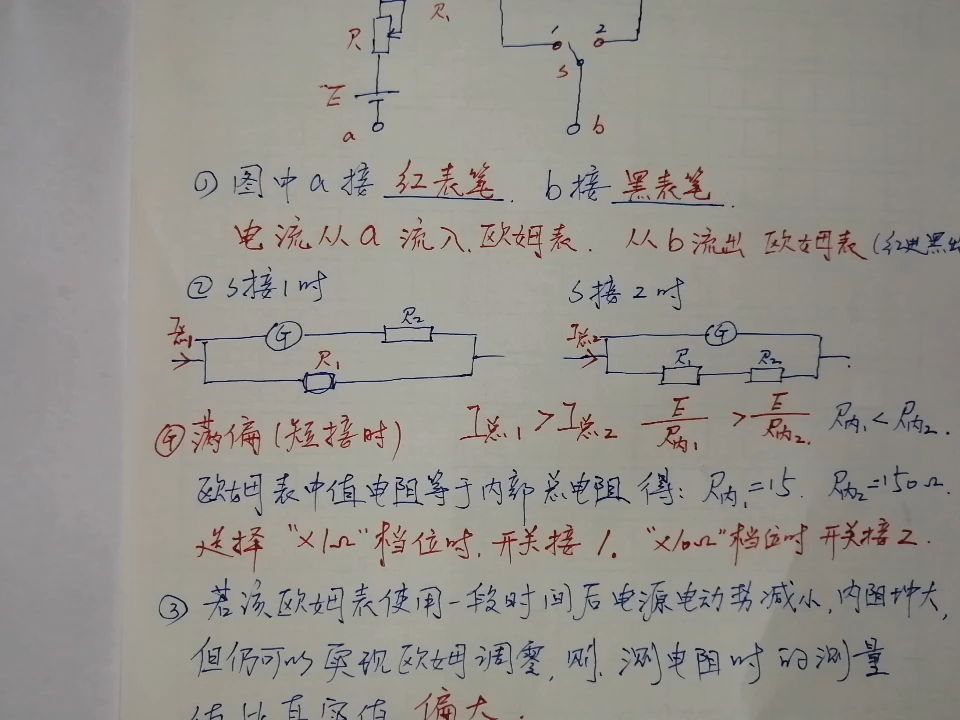 R R₁
1 2
S
E
a b
① 图中a接 红表笔. b接 黑表笔.
电流从a流入欧姆表. 从b流出欧姆表(红进黑出
② S接1时 S接2时
I总1 G R₂ I总2 G
R₁ R₁ R₂
Ⓖ满偏(短接时) I总1 > I总2 E/R内1 > E/R内2. R内1 < R内2.
欧姆表中值电阻等于内部总电阻得: R内1=15. R内2=150Ω.
选择"×1Ω"档位时, 开关接1. "×10Ω"档位时开关接2.
③ 若该欧姆表使用一段时间后电源电动势减小, 内阻增大,
但仍可以实现欧姆调零, 则, 测电阻时的测量
值比真实值 偏大.